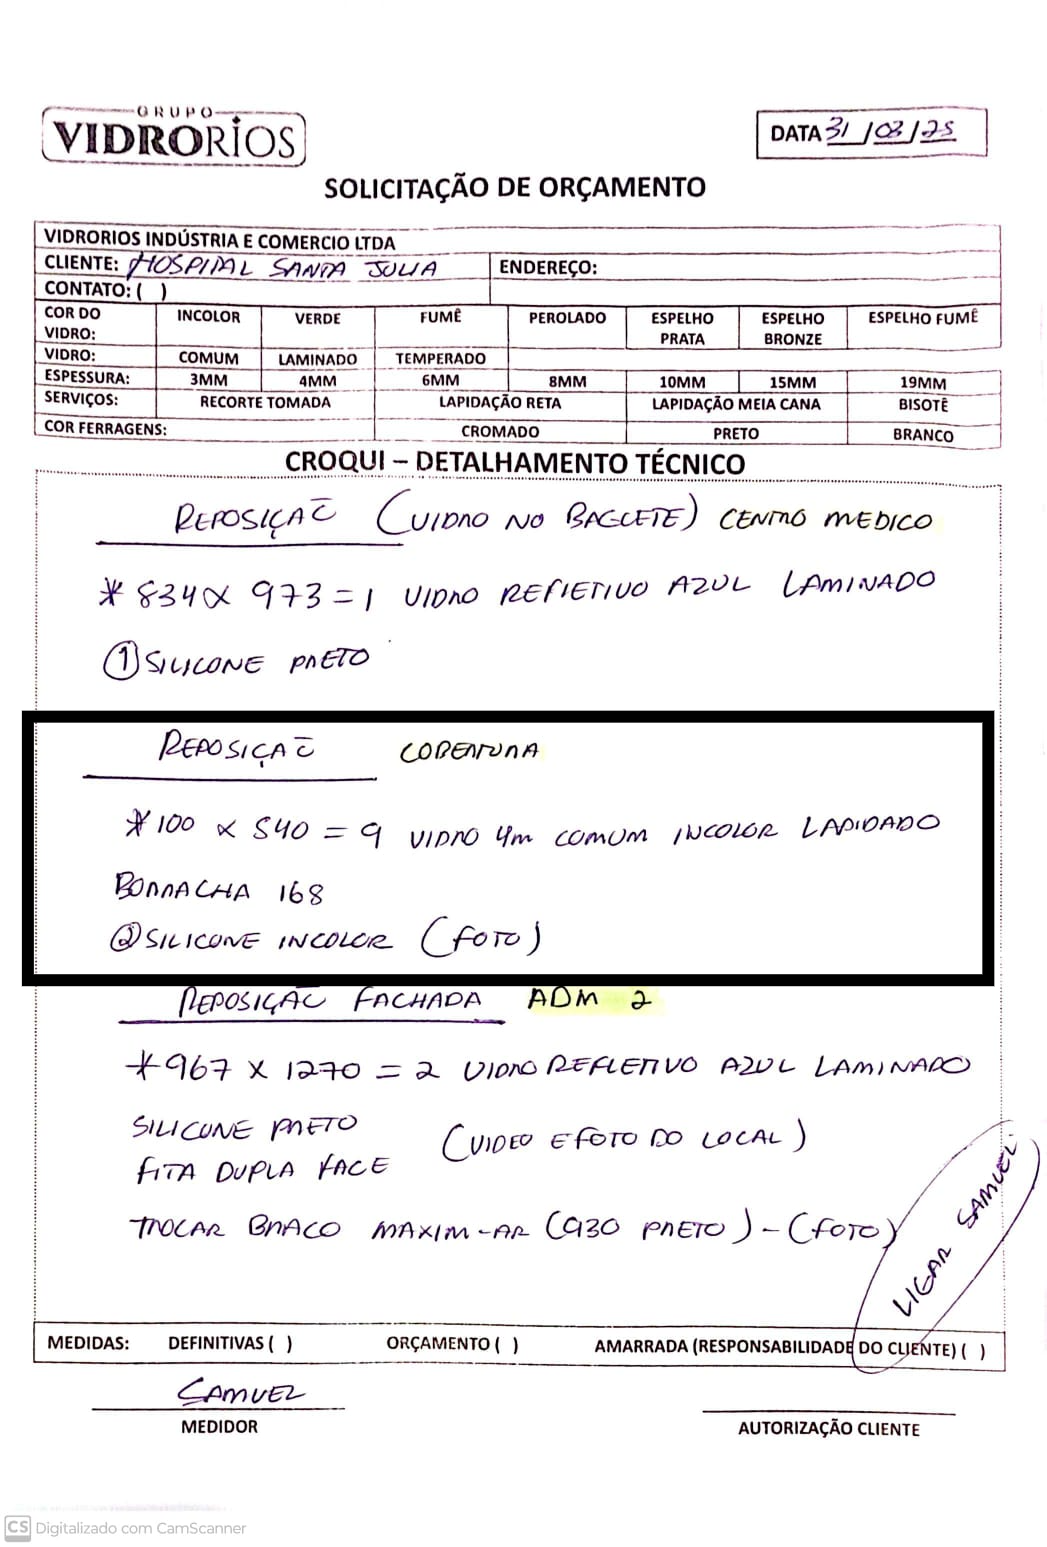 GRUPO
VIDRORIOS
DATA 31/03/25
SOLICITAÇÃO DE ORÇAMENTO
VIDRORIOS INDÚSTRIA E COMERCIO LTDA
CLIENTE: HOSPITAL SANTA JULIA ENDEREÇO:
CONTATO: ( )
COR DO VIDRO: INCOLOR VERDE FUMÊ PEROLADO ESPELHO PRATA ESPELHO BRONZE ESPELHO FUMÊ
VIDRO: COMUM LAMINADO TEMPERADO
ESPESSURA: 3MM 4MM 6MM 8MM 10MM 15MM 19MM
SERVIÇOS: RECORTE TOMADA LAPIDAÇÃO RETA LAPIDAÇÃO MEIA CANA BISOTÊ
COR FERRAGENS: CROMADO PRETO BRANCO
CROQUI – DETALHAMENTO TÉCNICO
REPOSIÇÃO (VIDRO NO BAGUETE) CENTRO MEDICO
* 834 x 973 = 1 VIDRO REFLETIVO AZUL LAMINADO
① SILICONE PRETO
REPOSIÇÃO COBERTURA
* 100 x 540 = 9 VIDRO 4m COMUM INCOLOR LAPIDADO
BORRACHA 168
② SILICONE INCOLOR (FOTO)
REPOSIÇÃO FACHADA ADM 2
* 967 x 1270 = 2 VIDRO REFLETIVO AZUL LAMINADO
SILICONE PRETO
(VIDEO E FOTO DO LOCAL)
FITA DUPLA FACE
TROCAR BRACO MAXIM-AR (930 PRETO) - (FOTO)
LIGAR SAMUEL
MEDIDAS: DEFINITIVAS ( ) ORÇAMENTO ( ) AMARRADA (RESPONSABILIDADE DO CLIENTE) ( )
SAMUEL
MEDIDOR AUTORIZAÇÃO CLIENTE
CS Digitalizado com CamScanner